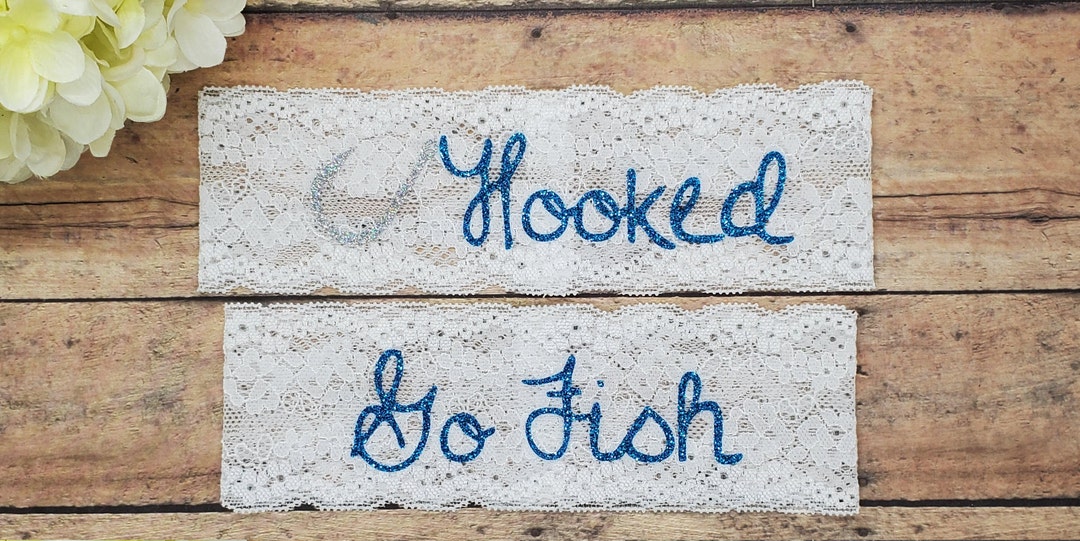 Hooked
Go Fish